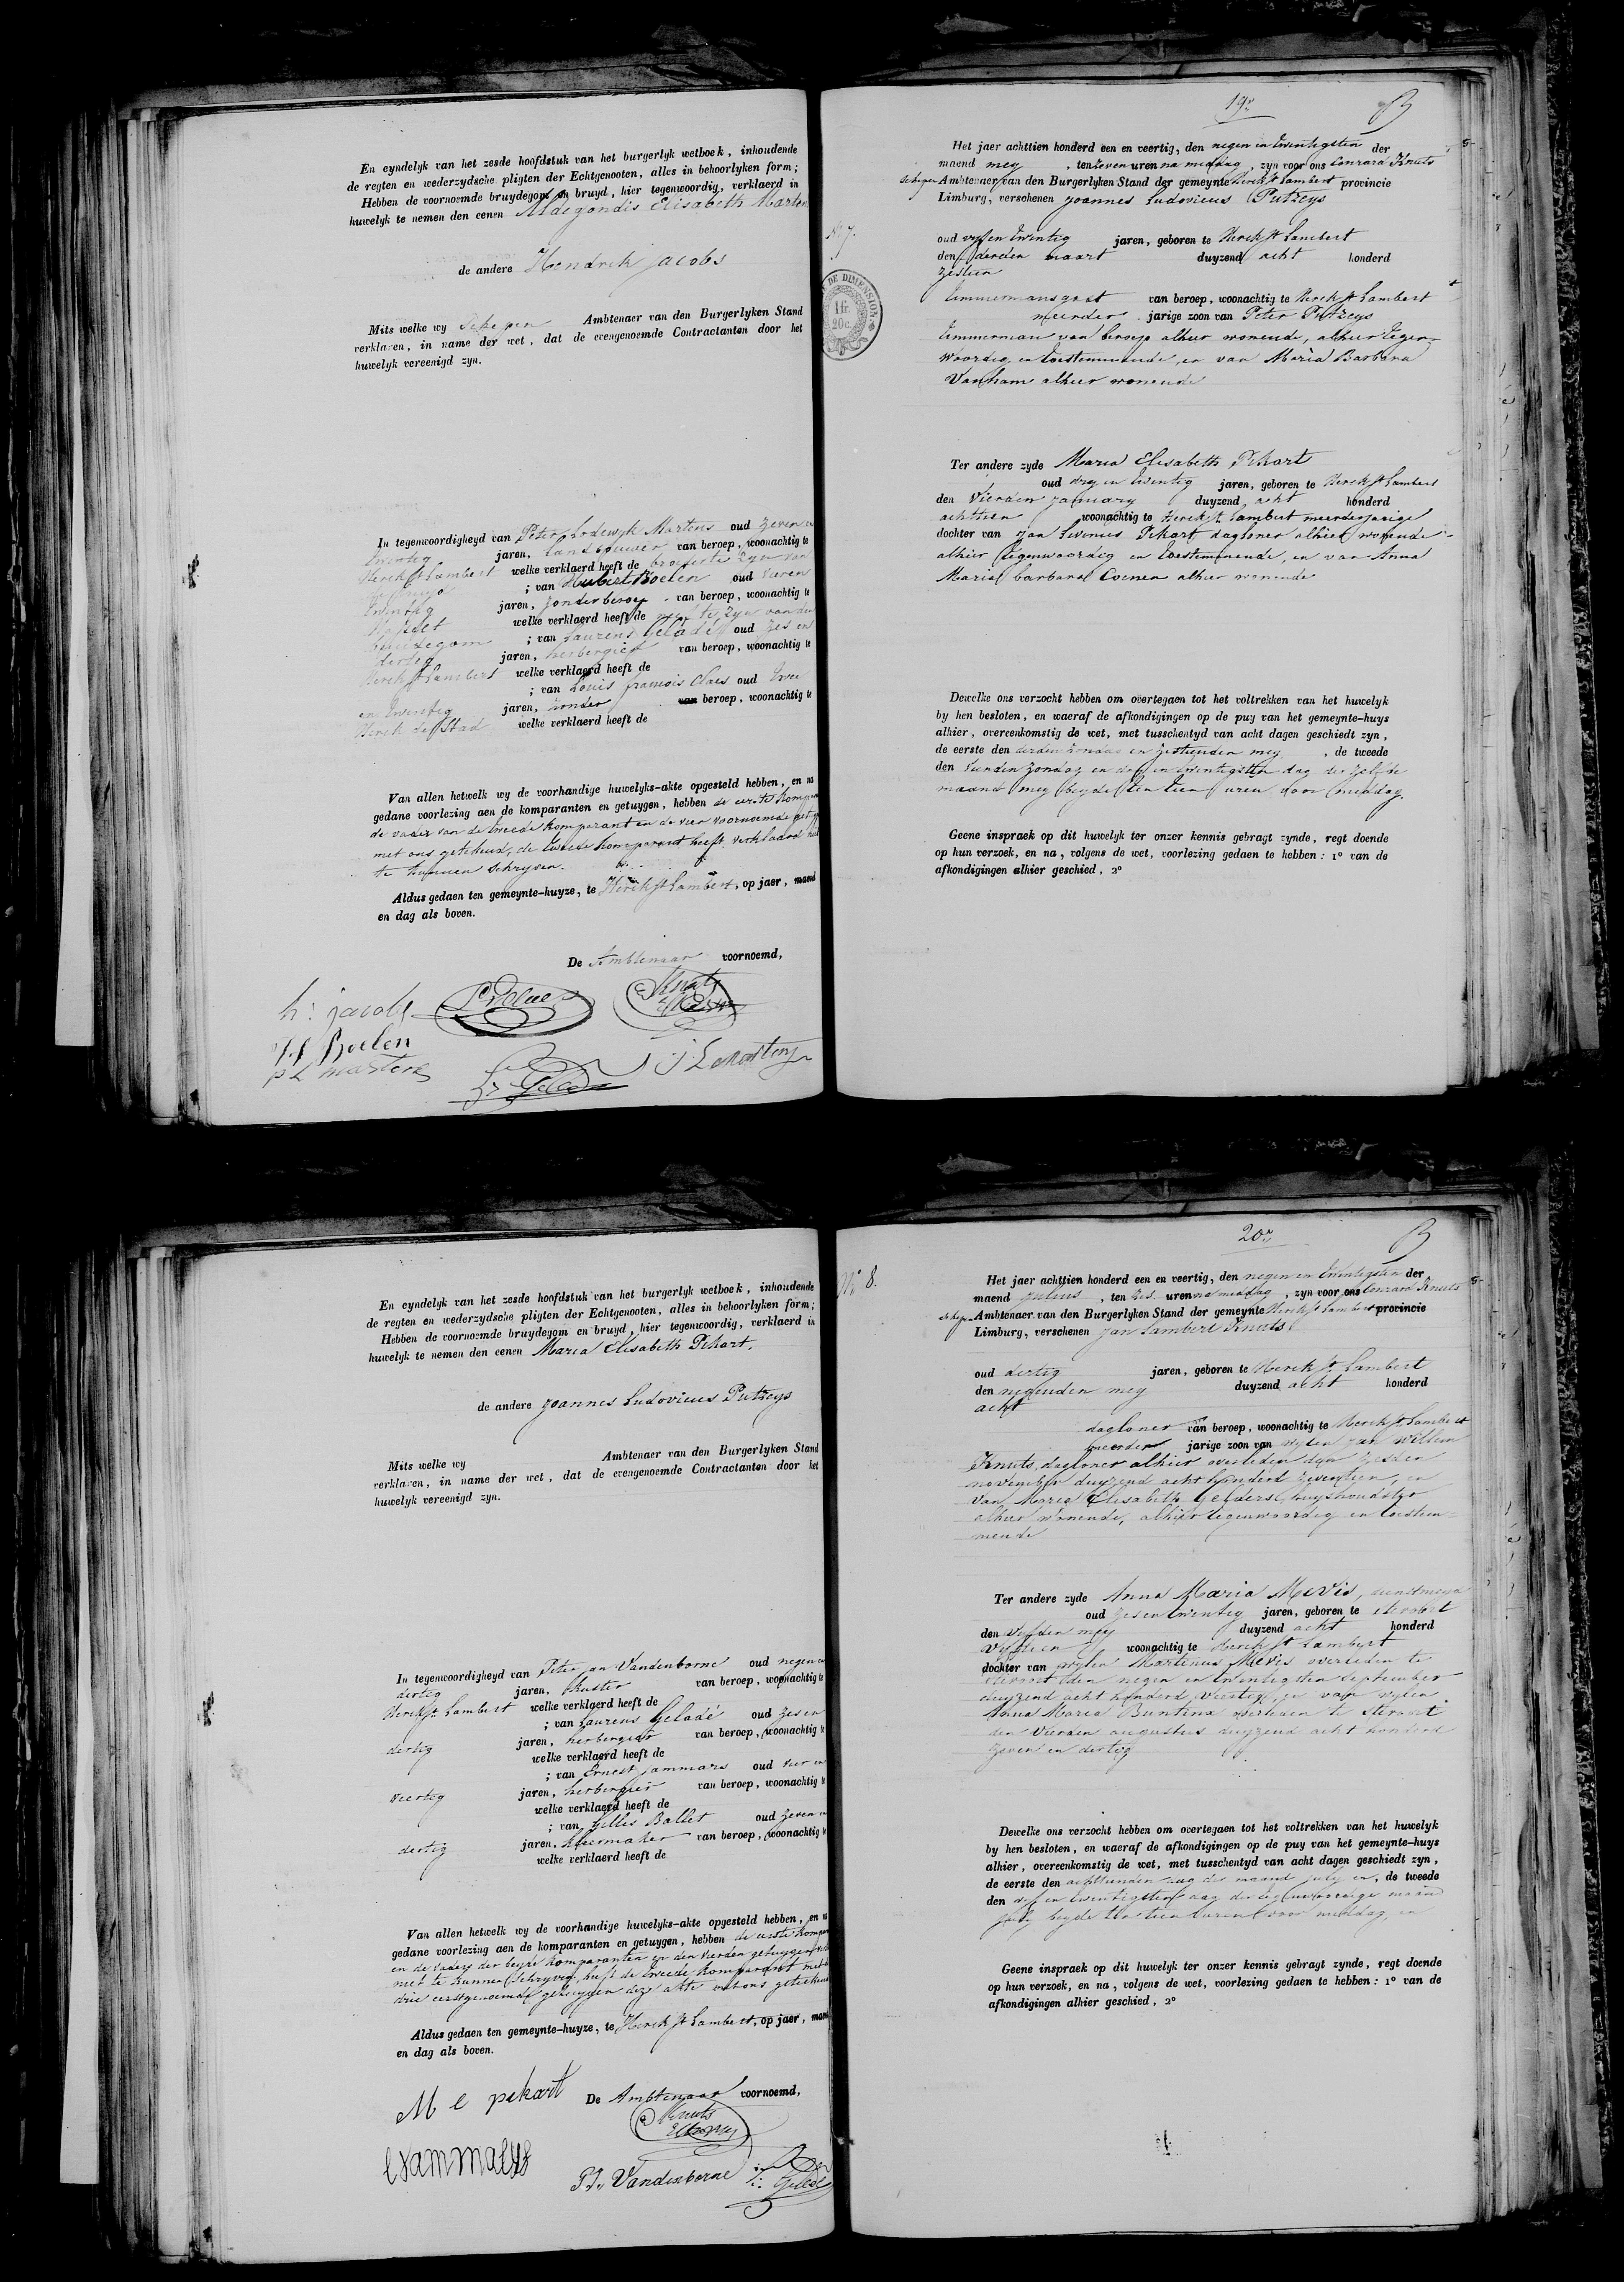 En eyndelyk van het zesde hoofdstuk van het burgerlyk wetboek, inhoudende
de regten en wederzydsche pligten der Echtgenooten, alles in behoorlyken form;
Hebben de voornoemde bruydegom en bruyd, hier tegenwoordig, verklaerd in
huwelyk te nemen den eenen Aldegondis Elisabeth Marten
de andere Hendrik jacobs
Mits welke wy Schepen Ambtenaer van den Burgerlyken Stand
verklaren, in name der wet, dat de evengenoemde Contractanten door het
huwelyk vereenigd zyn.
In tegenwoordigheyd van Peter Lodewyk Martens oud zeven en
twintig jaren, Landbouwer van beroep, woonachtig te
Herck St Lambert welke verklaerd heeft de broeder te zyn van
; van Hubert Boelen oud
twintig jaren, zonder beroep van beroep, woonachtig te
Hasselt welke verklaerd heeft de neef te zyn van den
bruidegom ; van Laurens Geladé oud zes en
dertig jaren, herbergier van beroep, woonachtig te
Herck St Lambert welke verklaerd heeft de
; van Louis françois Claes oud twee
en twintig jaren, zonder van beroep, woonachtig te
Herck de Stad welke verklaerd heeft de
Van allen hetwelk wy de voorhandige huwelyks-akte opgesteld hebben, en na
gedane voorlezing aen de komparanten en getuygen, hebben de eerste kompar
de vader van de tweede komparant en de vier voornoemde get
met ons getekend, de tweede komparant heeft verklaard niet
te kunnen schryven.
Aldus gedaen ten gemeynte-huyze, te Herck St Lambert, op jaer, maend
en dag als boven.
De Ambtenaar voornoemd,
h: jacobs
Knuts
H Boelen
p L martens
J L Martens
19e
Het jaer achttien honderd een en veertig, den negen en twintigsten der
maend mey, ten zeven uren na middag, zyn voor ons Conrard Knuts
schepen Ambtenaer van den Burgerlyken Stand der gemeynte Herck St Lambert provincie
Limburg, verschenen Joannes Ludovicus Putzeys
No 7.
DE DIMENSION
1 fr.
20 c.
oud vyf en twintig jaren, geboren te Herck St Lambert
den derden maart duyzend acht honderd
zestien
timmermansgast van beroep, woonachtig te Herck St Lambert
meerder jarige zoon van Peter Putzeys
timmerman van beroep alhier wonende, alhier tegen-
woordig en toestemmende, en van Maria Barbara
Vanham alhier wonende
Ter andere zyde Maria Elisabeth Pekart
oud dry en twintig jaren, geboren te Herck St Lambert
den vierden january duyzend acht honderd
achttien woonachtig te Herck St Lambert meerderjarige
dochter van Jan Livinus Pekart dagloner alhier wonende
alhier tegenwoordig en toestemmende, en van Anna
Maria barbara Coenen alhier wonende
Dewelke ons verzocht hebben om overtegaen tot het voltrekken van het huwelyk
by hen besloten, en waeraf de afkondigingen op de puy van het gemeynte-huys
alhier, overeenkomstig de wet, met tusschentyd van acht dagen geschiedt zyn,
de eerste den zestienden mey, de tweede
den zondag en dry en twintigsten dag der zelfde
maand mey beyde ten tien uren voor middag.
Geene inspraek op dit huwelyk ter onzer kennis gebragt zynde, regt doende
op hun verzoek, en na, volgens de wet, voorlezing gedaen te hebben: 1° van de
afkondigingen alhier geschied, 2°
En eyndelyk van het zesde hoofdstuk van het burgerlyk wetboek, inhoudende
de regten en wederzydsche pligten der Echtgenooten, alles in behoorlyken form;
Hebben de voornoemde bruydegom en bruyd, hier tegenwoordig, verklaerd in
huwelyk te nemen den eenen Maria Elisabeth Pekart.
de andere Joannes Ludovicus Putzeys
Mits welke wy Ambtenaer van den Burgerlyken Stand
verklaren, in name der wet, dat de evengenoemde Contractanten door het
huwelyk vereenigd zyn.
In tegenwoordigheyd van Peter jan Vandenborne oud negen en
dertig jaren, kuster van beroep, woonachtig te
Herck St Lambert welke verklaerd heeft de
; van Laurens Geladé oud zes en
dertig jaren, herbergier van beroep, woonachtig te
welke verklaerd heeft de
; van Ernest jammars oud vier en
veertig jaren, herbergier van beroep, woonachtig te
welke verklaerd heeft de
; van Gilles Ballet oud zeven en
dertig jaren, kleermaker van beroep, woonachtig te
welke verklaerd heeft de
Van allen hetwelk wy de voorhandige huwelyks-akte opgesteld hebben, en na
gedane voorlezing aen de komparanten en getuygen, hebben de eerste kompar
en de vaders der beyde komparanten en den vierden getuygen
niet te kunnen schryven, heeft de tweede komparant met
drie eerstgenoemde getuygen deze akte met ons getekend
Aldus gedaen ten gemeynte-huyze, te Herck St Lambert, op jaer, maend
en dag als boven.
De Ambtenaar voornoemd,
M e pekart
Knuts
P. J. Vandenborne
20e
No 8.
Het jaer achttien honderd een en veertig, den negen en twintigsten der
maend julius, ten zes uren na middag, zyn voor ons Conrard Knuts
schepen Ambtenaer van den Burgerlyken Stand der gemeynte Herck St Lambert provincie
Limburg, verschenen Jan Lambert Knuts
oud dertig jaren, geboren te Herck St Lambert
den negenden mey duyzend acht honderd
acht
dagloner van beroep, woonachtig te Herck St Lambert
meerder jarige zoon van wylen Jan Willem
Knuts, dagloner alhier overleden den zesden
november duyzend acht honderd zeventien, en
van Maria Elisabeth Gelders, huyshoudster
alhier wonende, alhier tegenwoordig en toestem-
mende
Ter andere zyde Anna Maria Mevis, dienstmeyd
oud zes en twintig jaren, geboren te Stevort
den vyfden mey duyzend acht honderd
vyftien woonachtig te Herck St Lambert
dochter van wylen Martinus Mevis overleden te
Stevort den negen en twintigsten september
duyzend acht honderd veertig, en van wylen
Anna Maria Buntinx overleden te Stevort
den vierden augustus duyzend acht honderd
zeven en dertig
Dewelke ons verzocht hebben om overtegaen tot het voltrekken van het huwelyk
by hen besloten, en waeraf de afkondigingen op de puy van het gemeynte-huys
alhier, overeenkomstig de wet, met tusschentyd van acht dagen geschiedt zyn,
de eerste den achttienden dag der maand july en, de tweede
den vyf en twintigsten dag der maand
july beyde ten tien uren voor middag, en
Geene inspraek op dit huwelyk ter onzer kennis gebragt zynde, regt doende
op hun verzoek, en na, volgens de wet, voorlezing gedaen te hebben: 1° van de
afkondigingen alhier geschied, 2°